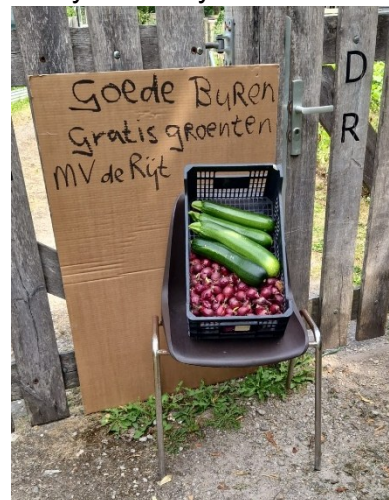 Goede BUREN
Gratis gROENTEN
MV de Rijt
D
R